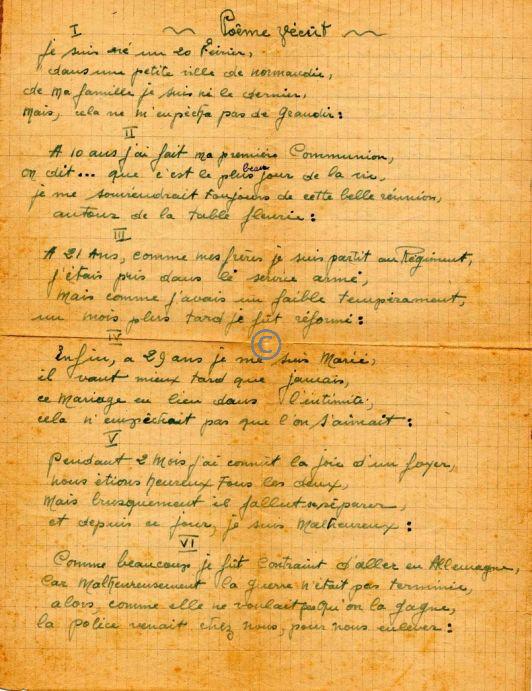 ~ Poême vécut ~
I
Je suis né un 20 Février,
dans une petite ville de normandie,
de ma famille je suis né le dernier,
Mais, cela ne m'enpêcha pas de Grandir :
II
A 10 ans j'ai fait ma première Communion,
on dit... que c'est le plus beau jour de la vie,
je me souviendrait toujours de cette belle réunion,
autour de la table fleurie :
III
A 21 Ans, comme mes frères je suis partit au Régiment,
j'étais pris dans le service armé,
Mais comme j'avais un faible tempérament,
un mois plus tard je fût réformé :
IV
Enfin, a 29 ans je me suis Marié,
il vaut mieux tard que jamais,
ce Mariage eu lieu dans l'intimité,
cela n'empêchait pas que l'on s'aimait :
V
Pendant 2 Mois j'ai connût la joie d'un foyer,
nous étions heureux tous les deux,
Mais brusquement il fallut se séparer,
et depuis ce jour, je suis Malheureux :
VI
Comme beaucoup je fût Contraint d'aller en Allemagne,
Car Malheureusement la guerre n'était pas terminée,
alors, comme elle ne voulait pas qu'on la gagne,
la police venait chez nous, pour nous enlever :
©